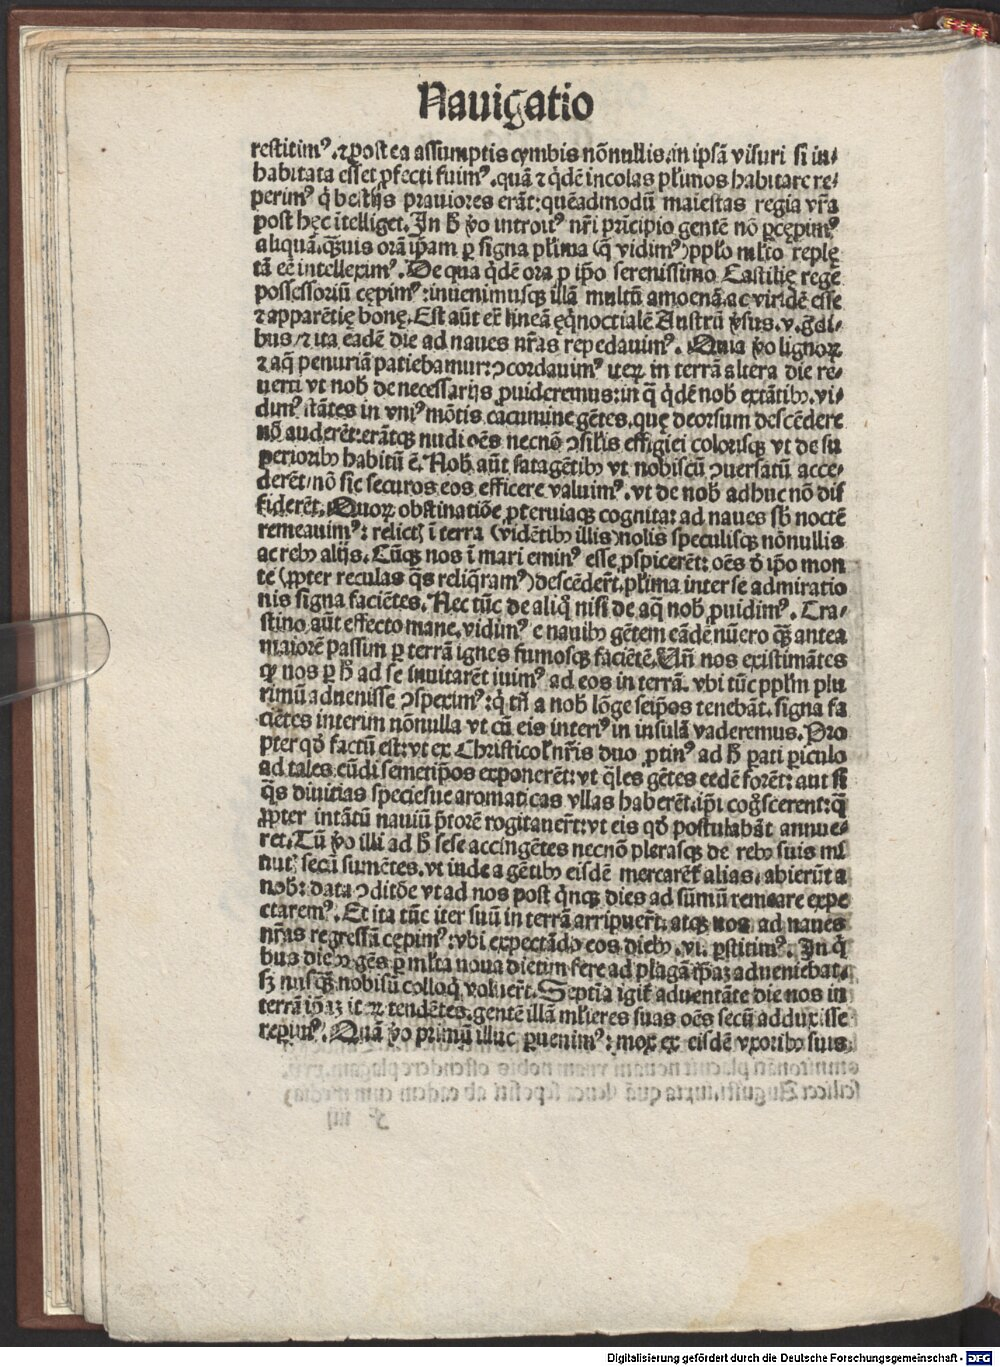 Nauigatio
restitimꝰ. ⁊ postea assumptis cymbis nõnullis. in ipsã visuri si in⸗
habitata esset ꝓfecti fuimꝰ. quã ⁊ q̃dẽ incolas pl̃imos habitare re⸗
perimꝰ q̇ bestijs prauiores erãt: quẽadmodũ maiestas regia vr̃a
post hęc ĩtelliget. In h̃ ṽo introitꝰ nr̃i pr̃icipio gentẽ nõ ꝑcępimꝰ
aliquã. qꝫuis orã ip̃am ꝑ signa pl̃ima (q̃ vidimꝰ) pp̃lo ml̃to replę
tã eẽ intellexim᷒ꝰ. De qua q̃dẽ ora ꝑ ip̃o serenissimo Castilię rege
possessoriũ cępimꝰ: inuenimusqꝫ illã multũ amoenã. ac viridẽ esse
⁊ apparẽtię bonę. Est aũt ex̃ lineã ęq̃noctialẽ Austrũ ṽsus. v. g̃di⸗
bus / ⁊ ita eadẽ die ad naues nr̃as repedauimꝰ. Quia ṽo lignoꝝ
⁊ aq̃ penuriã patiebamur: ꝯcordauimꝰ iteꝝ in terrã altera die re⸗
uerti vt nob̃ de necessarijs ꝓuideremus: in q̃ q̃dẽ nob̃ extãtibꝰ. vi⸗
dimꝰ stãtes in vniꝰ mõtis cacumine gẽtes. quę deorsum descẽdere
nõ auderẽt: erãtqꝫ nudi oẽs necnõ ꝯsil̃is effigiei colorisqꝫ vt de su
perioribꝰ habitũ ẽ. Nob̃ aũt satagẽtibꝰ vt nobiscũ ꝯuersatũ acce⸗
derẽt / nõ sic securos eos efficere valuimꝰ. vt de nob̃ adhuc nõ dif
fiderẽt. Quoꝝ obstinatiõe ꝓteruiaqꝫ cognita: ad naues sb̃ noctẽ
remeauimꝰ: relictꝭ ĩ terra (vidẽtibꝰ illis) nolis speculisqꝫ nõnullis
ac rebꝰ alijs. Cũqꝫ nos ĩ mari eminꝰ esse ꝓspicerẽt: oẽs d̃ ip̃o mon
te (ꝓpter reculas q̃s reliq̃ramꝰ) descẽder̃t. pl̃ima inter se admiratio
nis signa faciẽtes. Nec tũc de aliq̃ nisi de aq̃ nob̃ ꝓuidimꝰ. Cra⸗
stino aũt effecto mane. vidimꝰ e nauibꝰ gẽtem eãdẽ nũero qꝫ̃ antea
maiorẽ passim ꝑ terrã ignes fumosqꝫ faciẽtẽ. Vñ nos existimãtes
qꝙ nos ꝑ h̃ ad se inuitarẽt iuimꝰ ad eos in terrã. vbi tũc pp̃lm plu
rimũ aduenisse ꝯspeximꝰ: q̇ tñ a nob̃ lõge seip̃os tenebãt. signa fa
ciẽtes interim nõnulla vt cũ eis interiꝰ in insulã vaderemus. Pro
pter qd̃ factũ est: vt ex Christicol̃ nr̃is duo ꝓtinꝰ ad h̃ ꝑati ꝑiculo
ad tales eũdi semetip̃os exponerẽt: vt q̃les gẽtes eedẽ forẽt: aut si
q̃s diuitias speciesue aromaticas vllas haberẽt. ip̃i cog̃scerent: q̃
ꝓpter intãtũ nauiũ p̃torẽ rogitauer̃t: vt eis qd̃ postulabãt annue⸗
ret. Tũ ṽo illi ad h̃ sese accingẽtes necnõ plerasqꝫ de rebꝰ suis mi
nutꝭ secũ sumẽtes. vt inde a gẽtibꝰ eisdẽ mercarẽt̃ alias. abierũt a
nob̃: data ꝯditiõe vt ad nos post q̃nqꝫ dies ad sũmũ remeare expe
ctaremꝰ. Et ita tũc iter suũ in terrã arripuer̃t: atqꝫ nos ad naues
nr̃as regressũ cępimꝰ: vbi expectãdo eos diebꝰ. vi. ꝑstitimꝰ. In q̃
bus diebꝰ gẽs ꝑ ml̃ta noua dietim fere ad plagã ip̃aꝫ adueniebat.
sꝫ nusqꝫ̃ nobiscũ colloq̃ voluer̃t. Septĩa igit̃ aduentãte die nos in
terrã ip̃aꝫ iteꝝ tendẽtes. gentẽ illã ml̃ieres suas oẽs secũ adduxisse
reperimꝰ. Quã ṽo primũ illuc ꝑuenimꝰ: mox ex eisdẽ vxoribꝰ suis
Digitalisierung gefördert durch die Deutsche Forschungsgemeinschaft - DFG